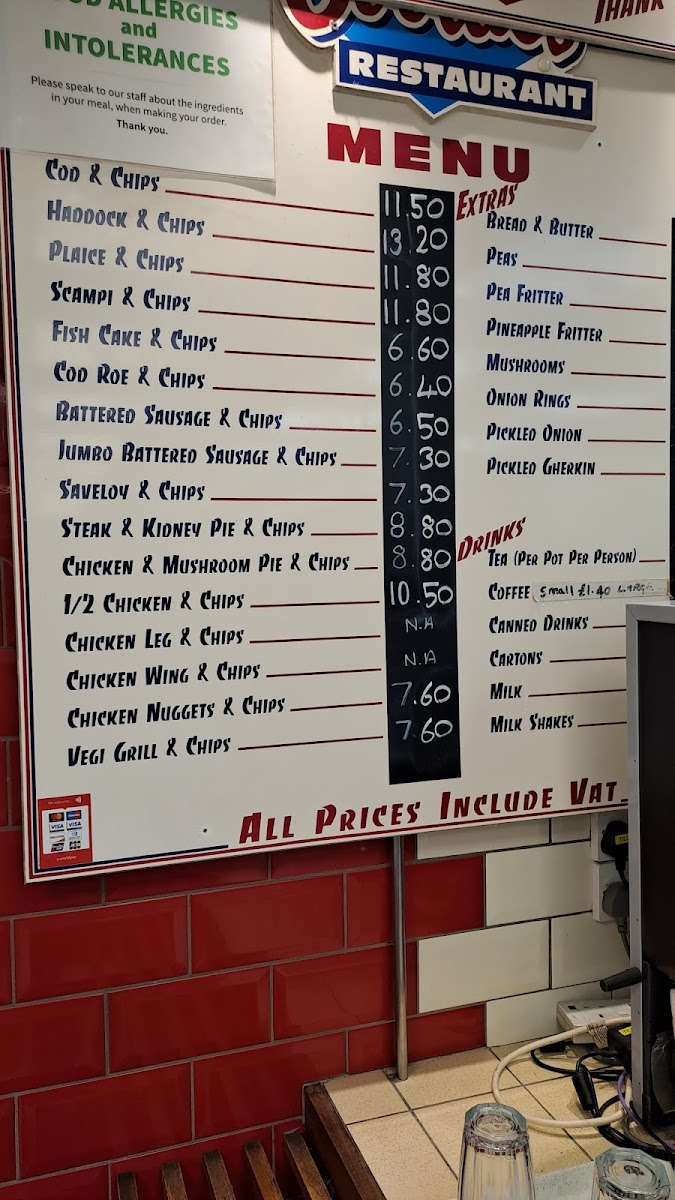 OOD ALLERGIES
and
INTOLERANCES
Please speak to our staff about the ingredients
in your meal, when making your order.
Thank you.
THANK
RESTAURANT
MENU
COD & CHIPS 11.50
HADDOCK & CHIPS 13.20
PLAICE & CHIPS 11.80
SCAMPI & CHIPS 11.80
FISH CAKE & CHIPS 6.60
COD ROE & CHIPS 6.40
BATTERED SAUSAGE & CHIPS 6.50
JUMBO BATTERED SAUSAGE & CHIPS 7.30
SAVELOY & CHIPS 7.30
STEAK & KIDNEY PIE & CHIPS 8.80
CHICKEN & MUSHROOM PIE & CHIPS 8.80
1/2 CHICKEN & CHIPS 10.50
CHICKEN LEG & CHIPS N.A
CHICKEN WING & CHIPS N.A
CHICKEN NUGGETS & CHIPS 7.60
VEGI GRILL & CHIPS 7.60
EXTRAS
BREAD & BUTTER
PEAS
PEA FRITTER
PINEAPPLE FRITTER
MUSHROOMS
ONION RINGS
PICKLED ONION
PICKLED GHERKIN
DRINKS
TEA (PER POT PER PERSON)
COFFEE Small £1.40
CANNED DRINKS
CARTONS
MILK
MILK SHAKES
ALL PRICES INCLUDE VAT
VISA VISA